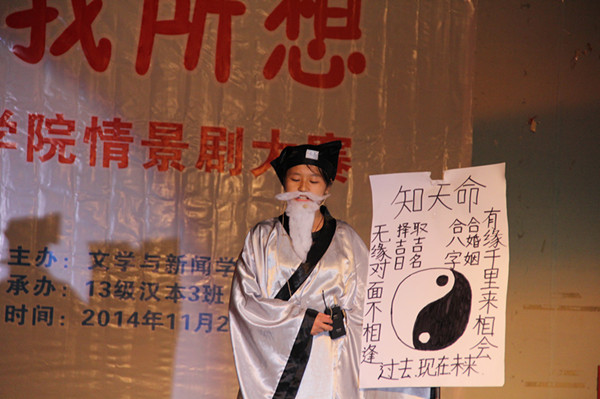 我所想
学院情景剧大赛
主办：文学与新闻学
承办：13级汉本3班
时间：2014年11月2
知天命
有缘千里来相会
合婚姻
合八字
取吉名
择吉日
无缘对面不相逢
过去.现在.未来